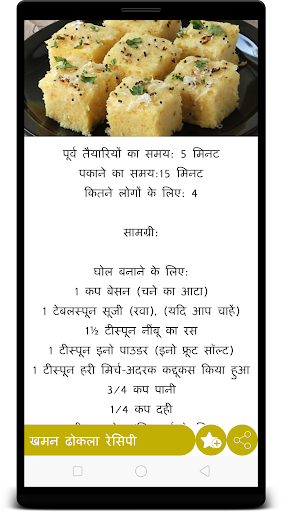 पूर्व तैयारियों का समय: 5 मिनट
पकाने का समय:15 मिनट
कितने लोगों के लिए: 4
सामग्री:
घोल बनाने के लिए:
1 कप बेसन (चने का आटा)
1 टेबलस्पून सूजी (रवा), (यदि आप चाहें)
1½ टीस्पून नींबू का रस
1 टीस्पून इनो पाउडर (इनो फ्रूट सॉल्ट)
1 टीस्पून हरी मिर्च-अदरक कद्दूकस किया हुआ
3/4 कप पानी
1/4 कप दही
खमन ढोकला रेसिपी